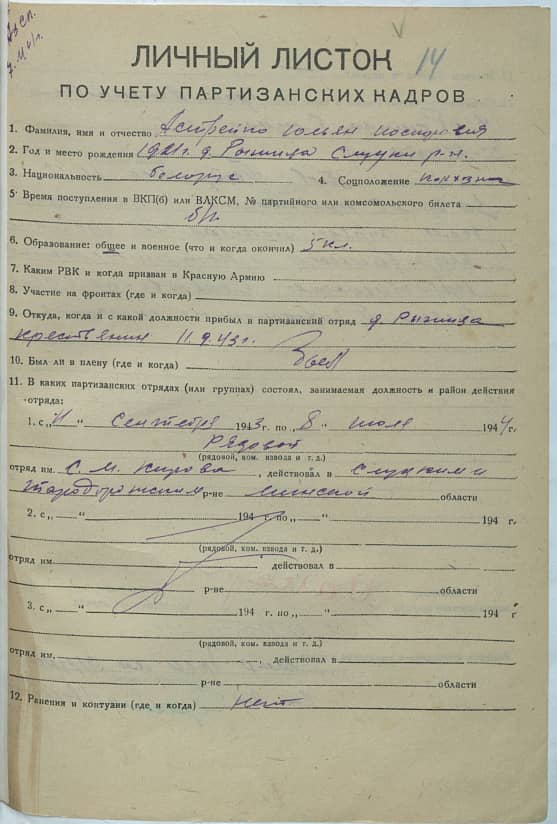 14
ЛИЧНЫЙ ЛИСТОК
ПО УЧЕТУ ПАРТИЗАНСКИХ КАДРОВ
1. Фамилия, имя и отчество Астрейко Юльян
2. Год и место рождения 1921 г. д. Рымица Слуцки р-н.
3. Национальность белорус 4. Соцположение колхозник
5 Время поступления в ВКП(б) или ВЛКСМ, № партийного или комсомольского билета
б/п
6. Образование: общее и военное (что и когда окончил) 5 кл.
7. Каким РВК и когда призван в Красную Армию
8. Участие на фронтах (где и когда)
9. Откуда, когда и с какой должности прибыл в партизанский отряд д. Рымица
крестьянин 11.9.43 г.
10. Был ли в плену (где и когда)
11. В каких партизанских отрядах (или группах) состоял, занимаемая должность и район действия
отряда:
1. с „11" сентября 1943 г. по „8" июля 1944 г.
Рядовой
(рядовой, ком. взвода и т. д.)
отряд им. С. М. Кирова, действовал в Слуцким и
Стародорожским р-не Минской области
2. с „ " 194 г. по „ " 194 г.
(рядовой, ком. взвода и т. д.)
отряд им. действовал в
р-не области
3. с „ " 194 г. по „ " 194 г
(рядовой, ком. взвода и т. д.)
отряд им. , действовал в
р-не области
12. Ранения и контузии (где и когда) нет